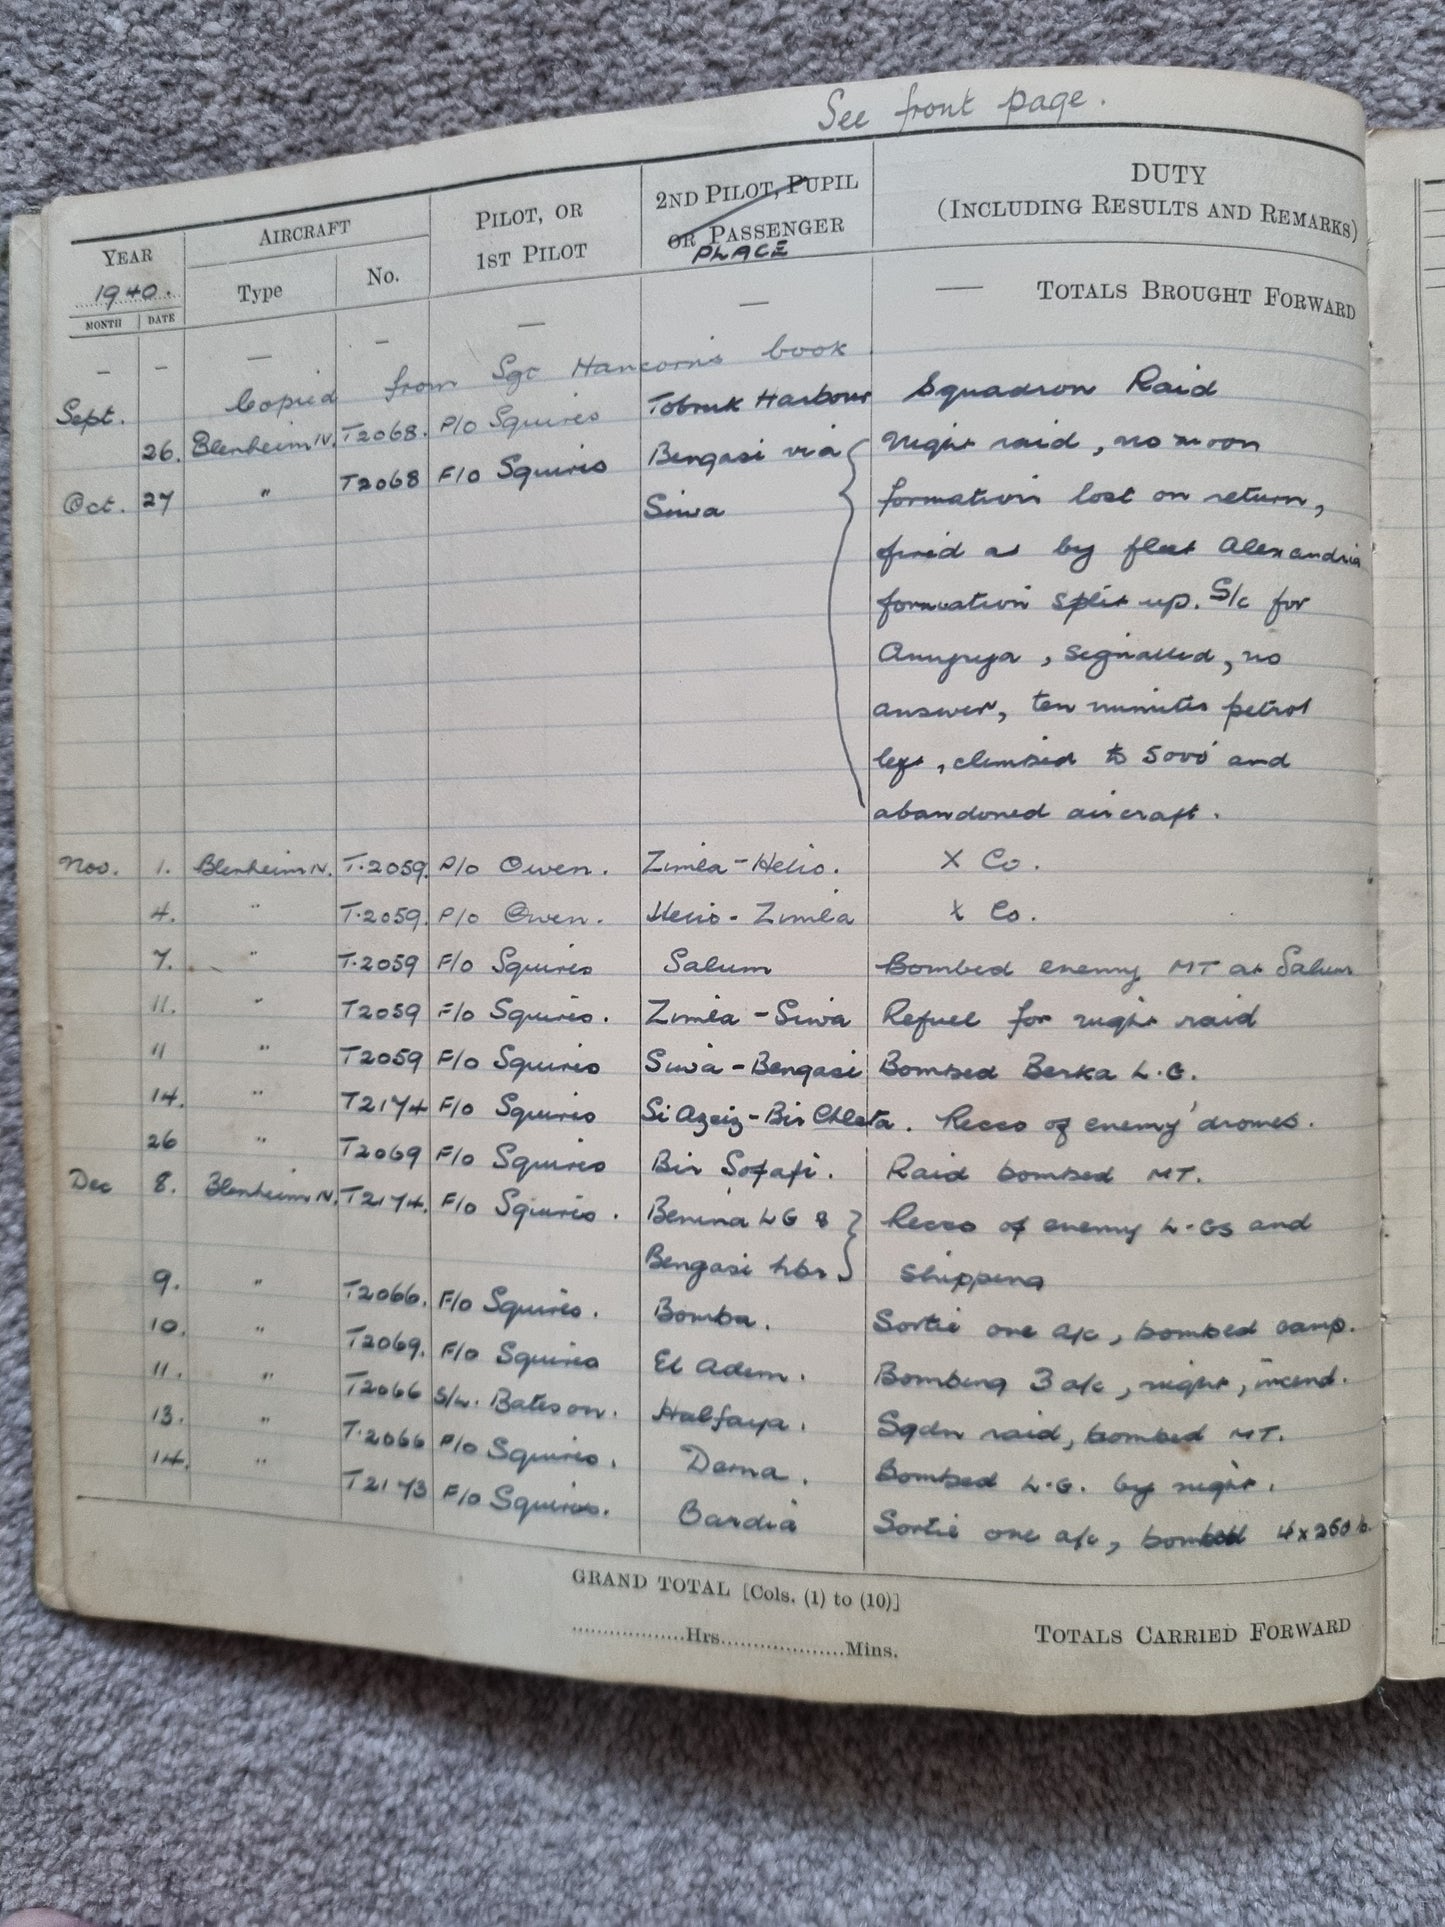 See front page.
YEAR AIRCRAFT PILOT, OR 2ND PILOT, PUPIL DUTY
1940. Type No. 1ST PILOT OR PASSENGER (INCLUDING RESULTS AND REMARKS)
MONTH DATE PLACE
— — — — — — — TOTALS BROUGHT FORWARD
Copied from Sgt Hancorn's book
Sept. 26. Blenheim IV. T2068. P/O Squires Tobruk Harbour Squadron Raid
Oct. 27 " T2068 F/O Squires Bengasi via Night raid, no moon
Siwa formation lost on return,
fired at by fleet Alexandria
formation split up. S/c for
, signalled, no
answer, ten minutes petrol
left, climbed to 5000' and
abandoned aircraft.
Nov. 1. Blenheim IV. T.2059. P/O Owen. Zimla-Helio. X Co.
4. " T.2059. P/O Owen. Helio-Zimla X Co.
7. " T.2059 F/O Squires Salum Bombed enemy MT at Salum
11. " T2059 F/O Squires. Zimla-Siwa Refuel for night raid
11 " T2059 F/O Squires Siwa-Bengasi Bombed Berka L.G.
14. " T2174 F/O Squires Si Azeiz-Bir Chleta. Recco of enemy 'dromes.
26 " T2069 F/O Squires Bir Sofafi. Raid bombed MT.
Dec 8. Blenheim IV. T2174. F/O Squires. Benina LG & Recco of enemy L.Gs and
Bengasi hbr shipping
9. " T2066. F/O Squires. Bomba. Sortie one a/c, bombed camp.
10. " T2069. F/O Squires El Adem. Bombing 3 a/c, night, incend.
11. " T2066 S/L. Bateson. Halfaya. Sqdn raid, bombed MT.
13. " T.2066 P/O Squires. Derna. Bombed L.G. by night.
14. " T2173 F/O Squires. Bardia Sortie one a/c, bombed 4x250 lb.
GRAND TOTAL [Cols. (1) to (10)]
..................Hrs....................Mins. TOTALS CARRIED FORWARD